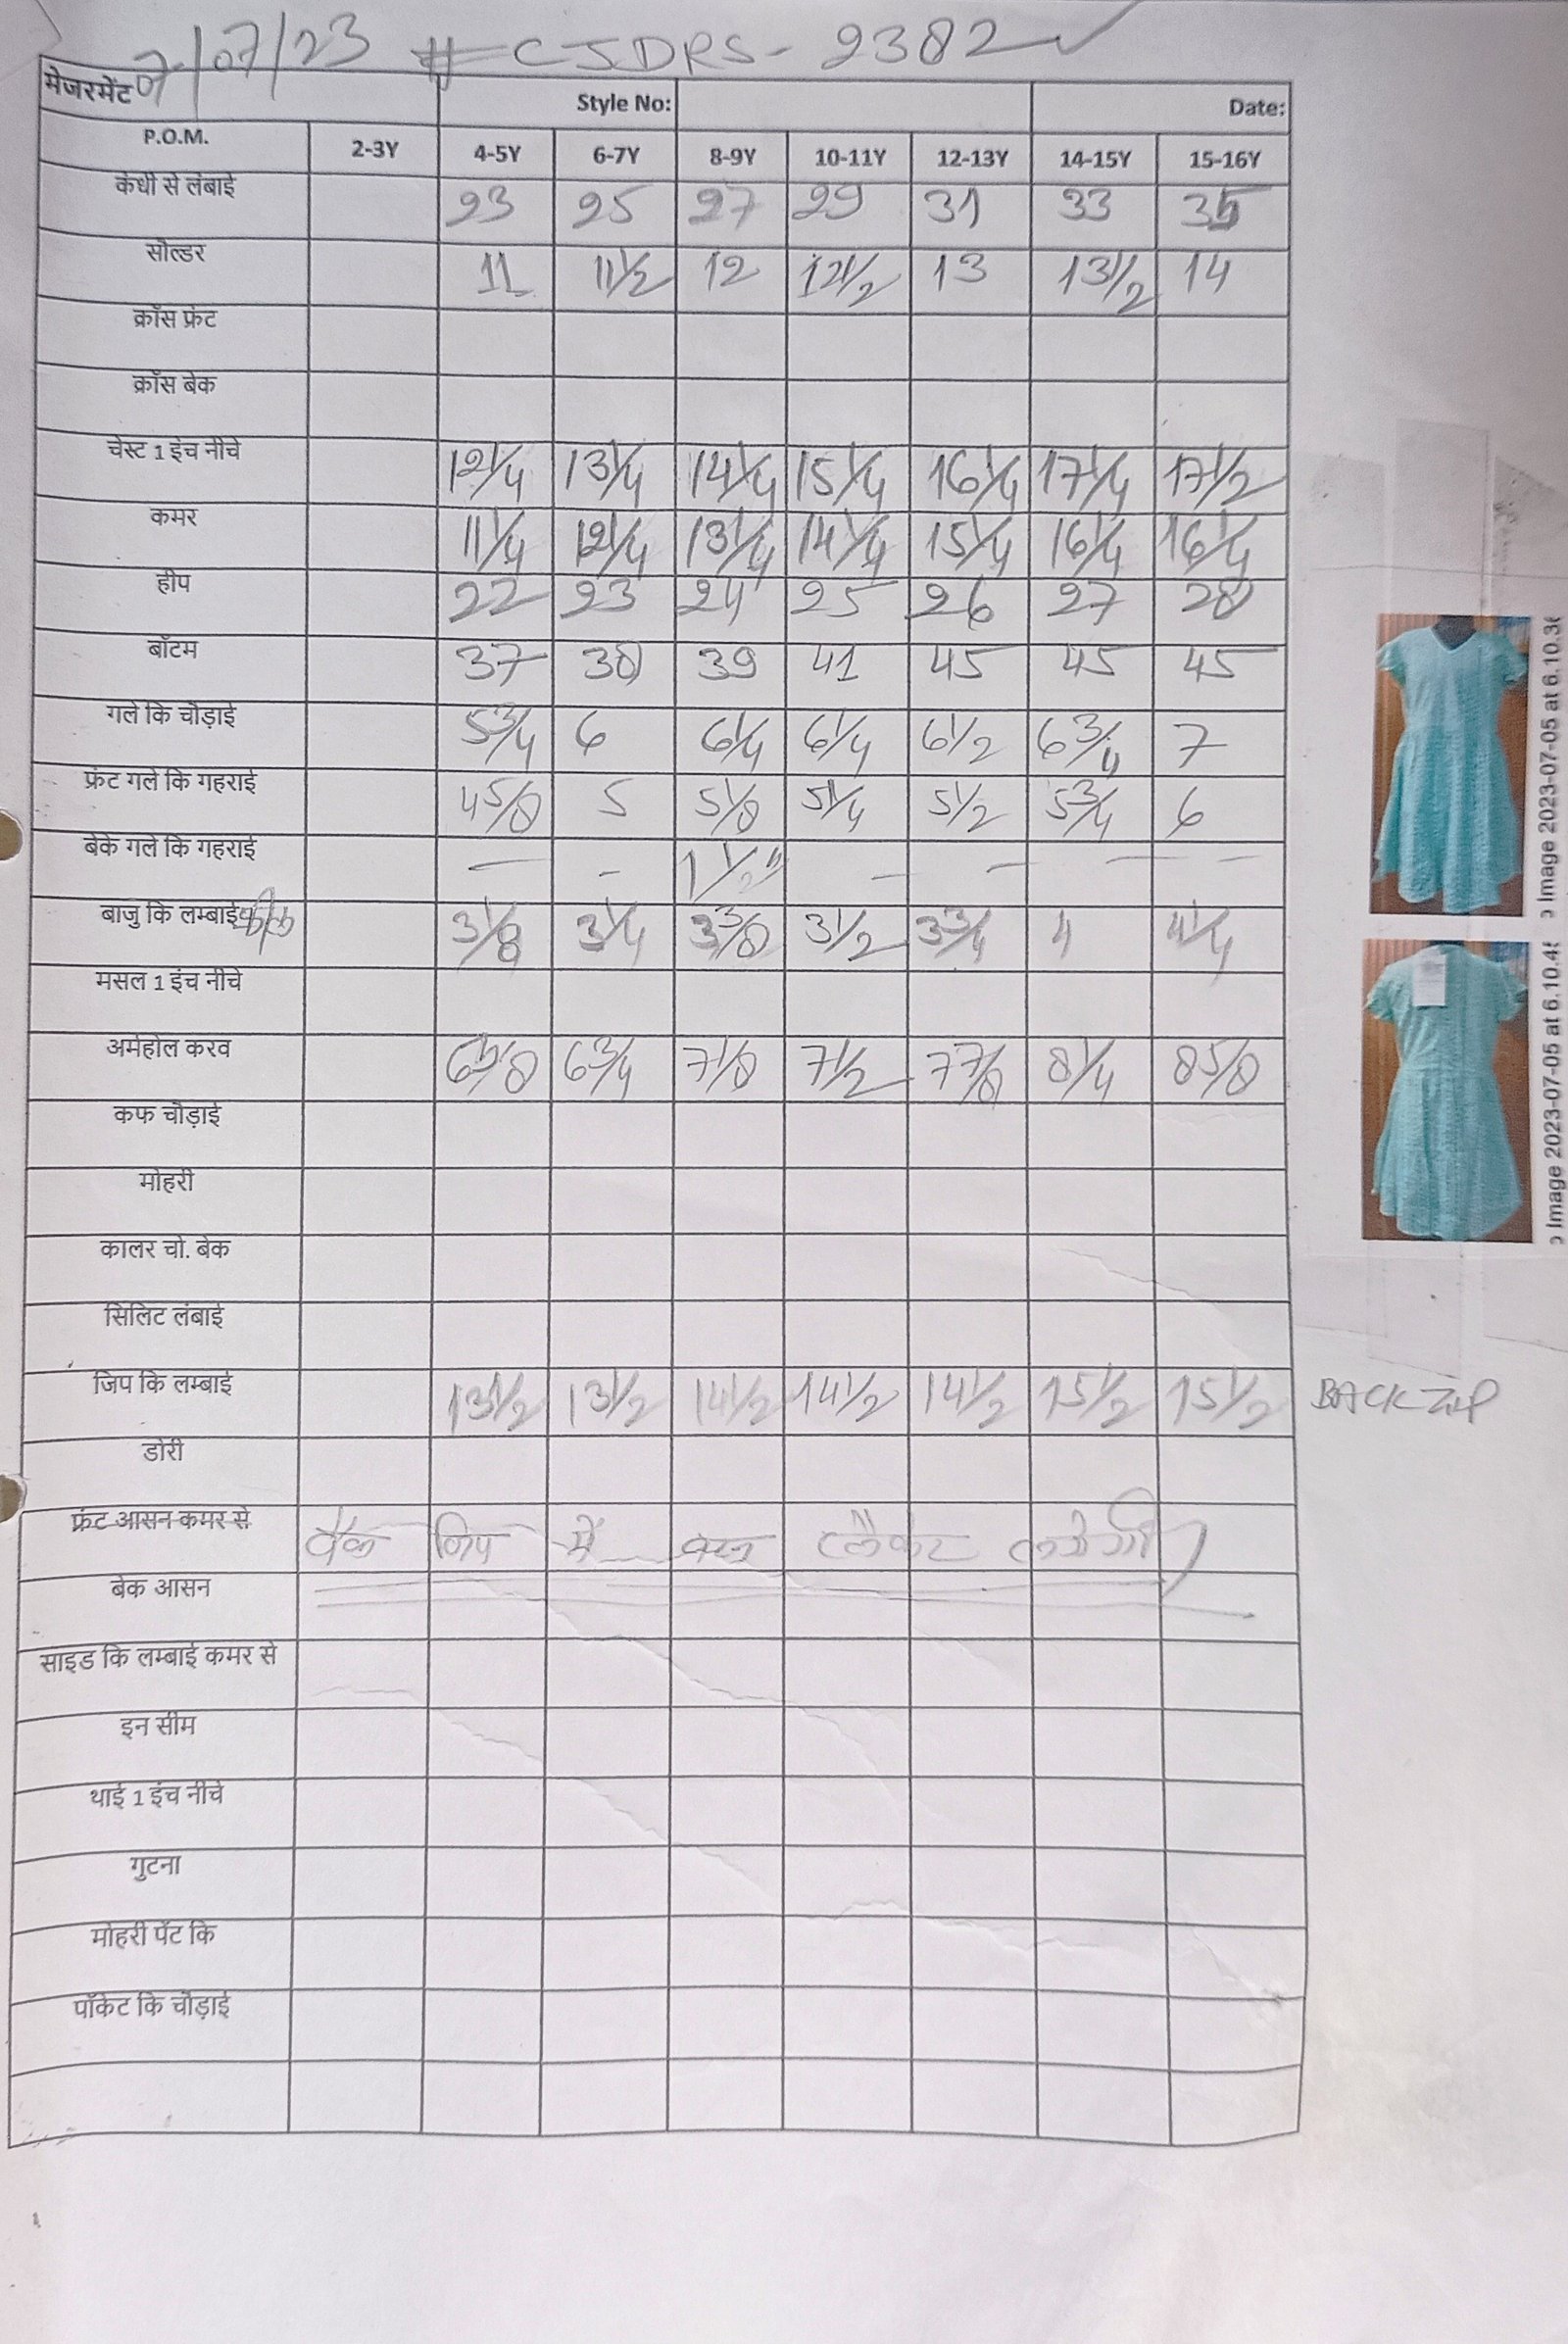 07/07/23 #CJDRS-2382
मेजरमेंट Style No: Date:
P.O.M. 2-3Y 4-5Y 6-7Y 8-9Y 10-11Y 12-13Y 14-15Y 15-16Y
कंधी से लंबाई 23 25 27 29 31 33 35
सोल्डर 11 11 1/2 12 12 1/2 13 13 1/2 14
क्रॉस फ्रंट
क्रॉस बेक
चेस्ट 1 इंच नीचे 12 1/4 13 1/4 14 1/4 15 1/4 16 1/4 17 1/4 17 1/2
कमर 11 1/4 12 1/4 13 1/4 14 1/4 15 1/4 16 1/4 16 1/4
हीप 22 23 24 25 26 27 28
बॉटम 37 38 39 41 45 45 45
गले कि चौड़ाई 5 3/4 6 6 1/4 6 1/4 6 1/2 6 3/4 7
फ्रंट गले कि गहराई 4 5/8 5 5 1/8 5 1/4 5 1/2 5 3/4 6
बेके गले कि गहराई — - 1 1/2" — — — —
बाजु कि लम्बाई 3 1/8 3 1/4 3 3/8 3 1/2 3 3/4 4 4 1/4
मसल 1 इंच नीचे
अर्महोल करव 6 3/4 7 1/8 7 1/2 7 7/8 8 1/4 8 5/8
कफ चौड़ाई
मोहरी
कालर चो. बेक
सिलिट लंबाई
जिप कि लम्बाई 13 1/2 13 1/2 14 1/2 14 1/2 14 1/2 15 1/2 15 1/2 BACK ZIP
डोरी
फ्रंट आसन कमर से बैक जिप में लगेगी
बेक आसन
साइड कि लम्बाई कमर से
इन सीम
थाई 1 इंच नीचे
गुटना
मोहरी पेंट कि
पॉकेट कि चौड़ाई
Image 2023-07-05 at 6.10.3
Image 2023-07-05 at 6.10.4